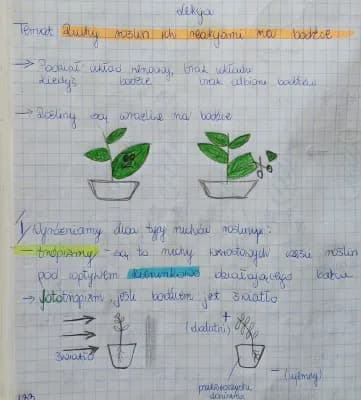 Lekcja
Temat: Ruchy roślin ich reakcjami na bodźce
układ nerwowy, brak układu
bodźce brak
→ Rośliny są wrażliwe na bodźce
1) Wyróżniamy dwa typy ruchów roślinnych:
- tropizmy - są to ruchy wzrostowych części roślin
pod wpływem kierunkowo działającego bodźca
→ fototropizm, jeśli bodźcem jest światło
+
(dodatni)
światło
- (ujemny)